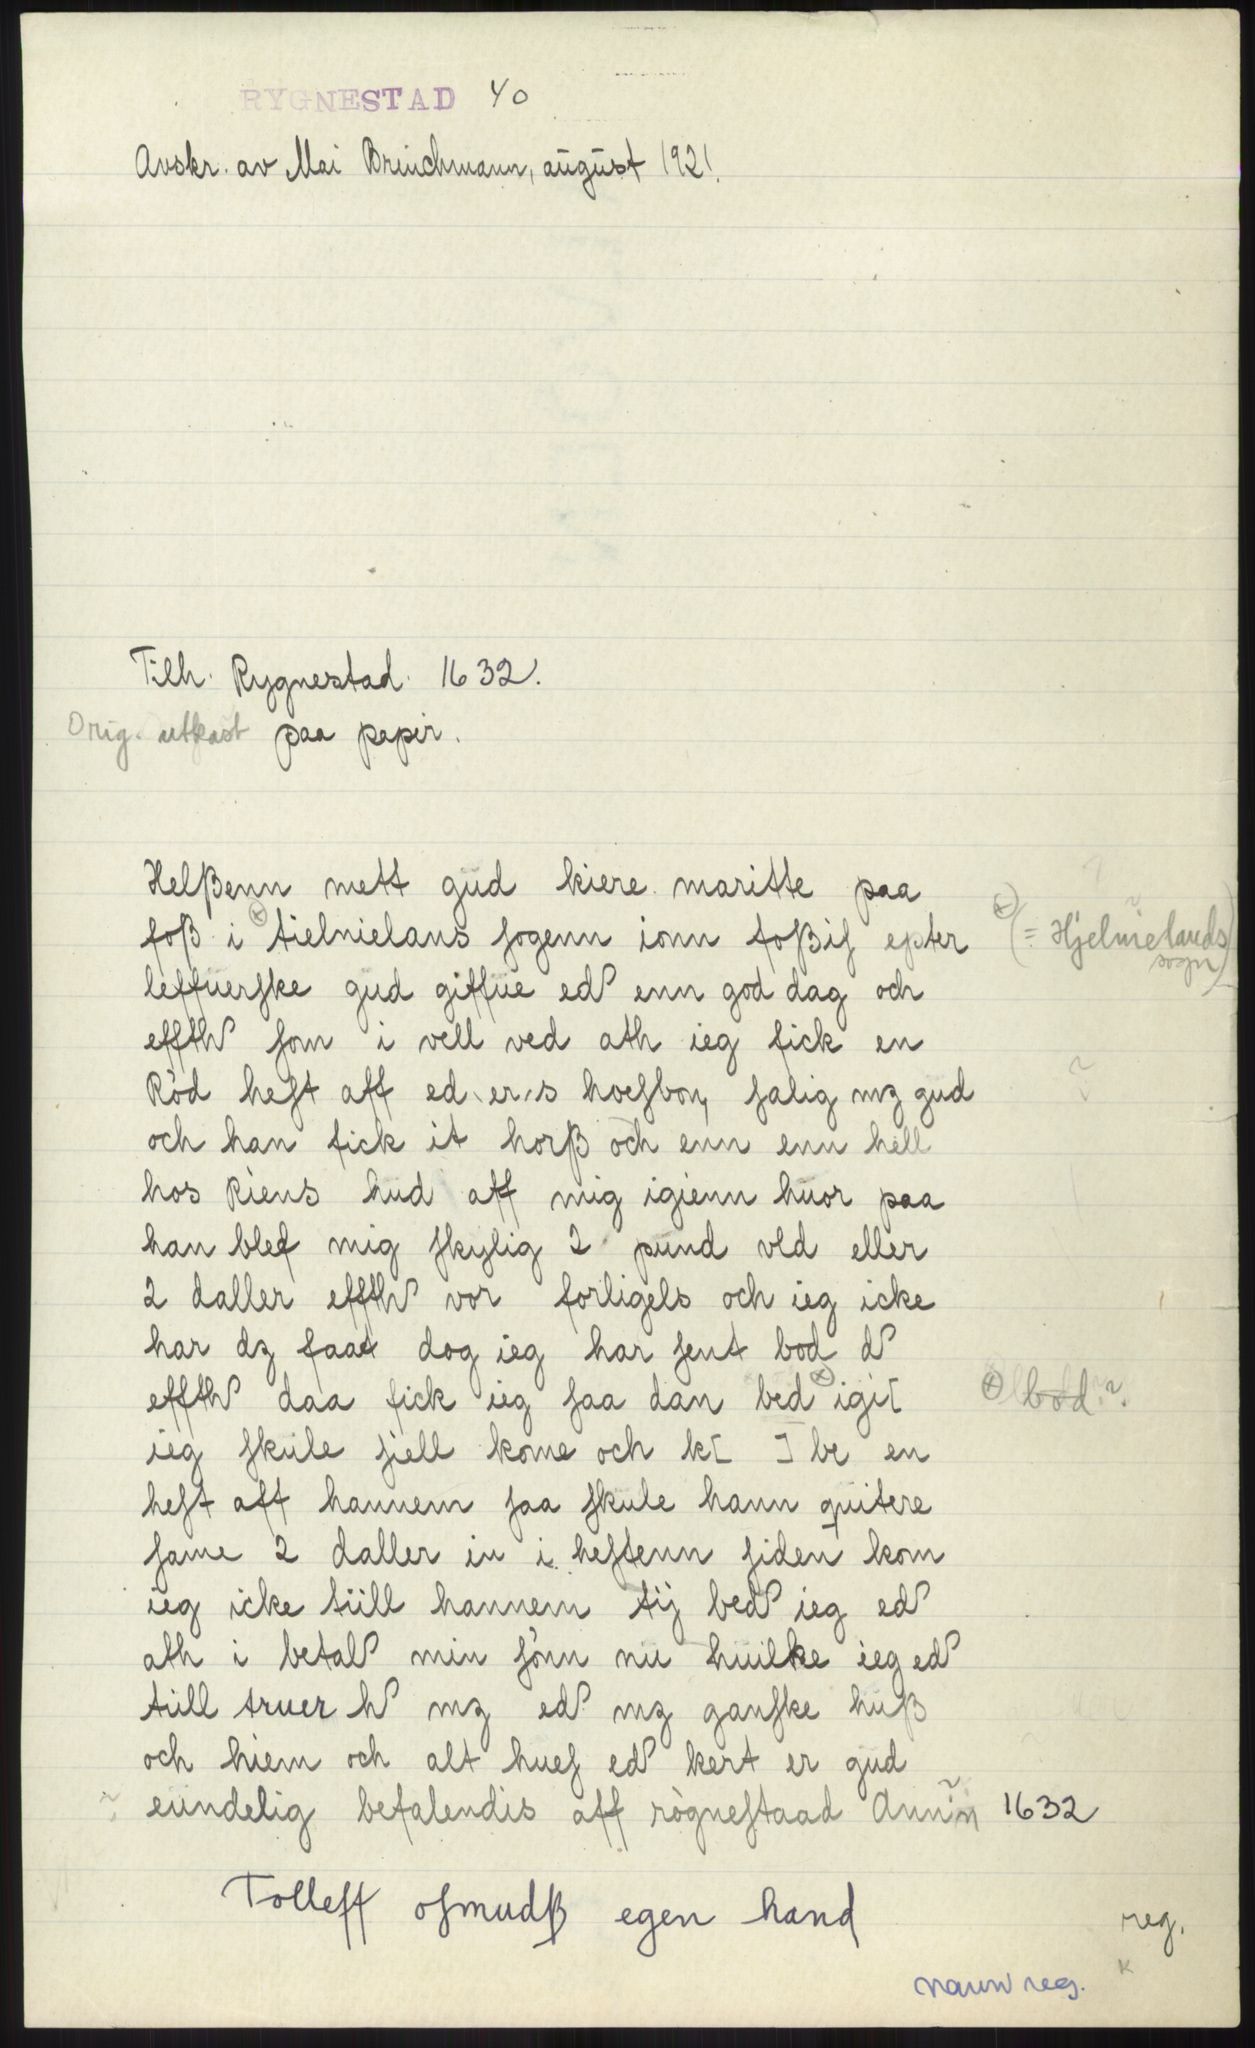 RYGNESTAD 40
Avskr. av Mai Brinchmann, august 1921.
Tilh. Rygnestad. 1632.
Orig. utkast paa papir.
Helßenn mett gud kiere maritte paa
foß i ⓧ tielmelans sogenn ionn foßis epter
leffuerske gud giffue ed enn god dag och
effth som i vell ved ath ieg fick en
Rød hest aff ed.er.s hoesbon, salig mz gud
och han fick it horß och enn enn hell
hos Riens hud aff mig igienn huor paa
han blef mig skylig 2 pund vld eller
2 daller effth vor forligels och ieg icke
har dz faat dog ieg har sent bod d
effth daa fick ieg saa dan bed ⓧ igi[
ieg skule siell kome och k[ ] be en
hest aff hannem saa skule hann quitere
same 2 daller in i hestenn siden kom
ieg icke tiill hannem tij bed ieg ed
ath i betal min sønn nu huilke ieg ed
tiill truer h mz ed mz ganske huß
och hiem och alt hues ed kert er gud
euindelig befalendis aff røgnestaad Annin 1632
Tolleff osmudß egen hand
ⓧ (= Hjelmelands
sogn)
ⓧ bod?
reg.
navnreg.
k